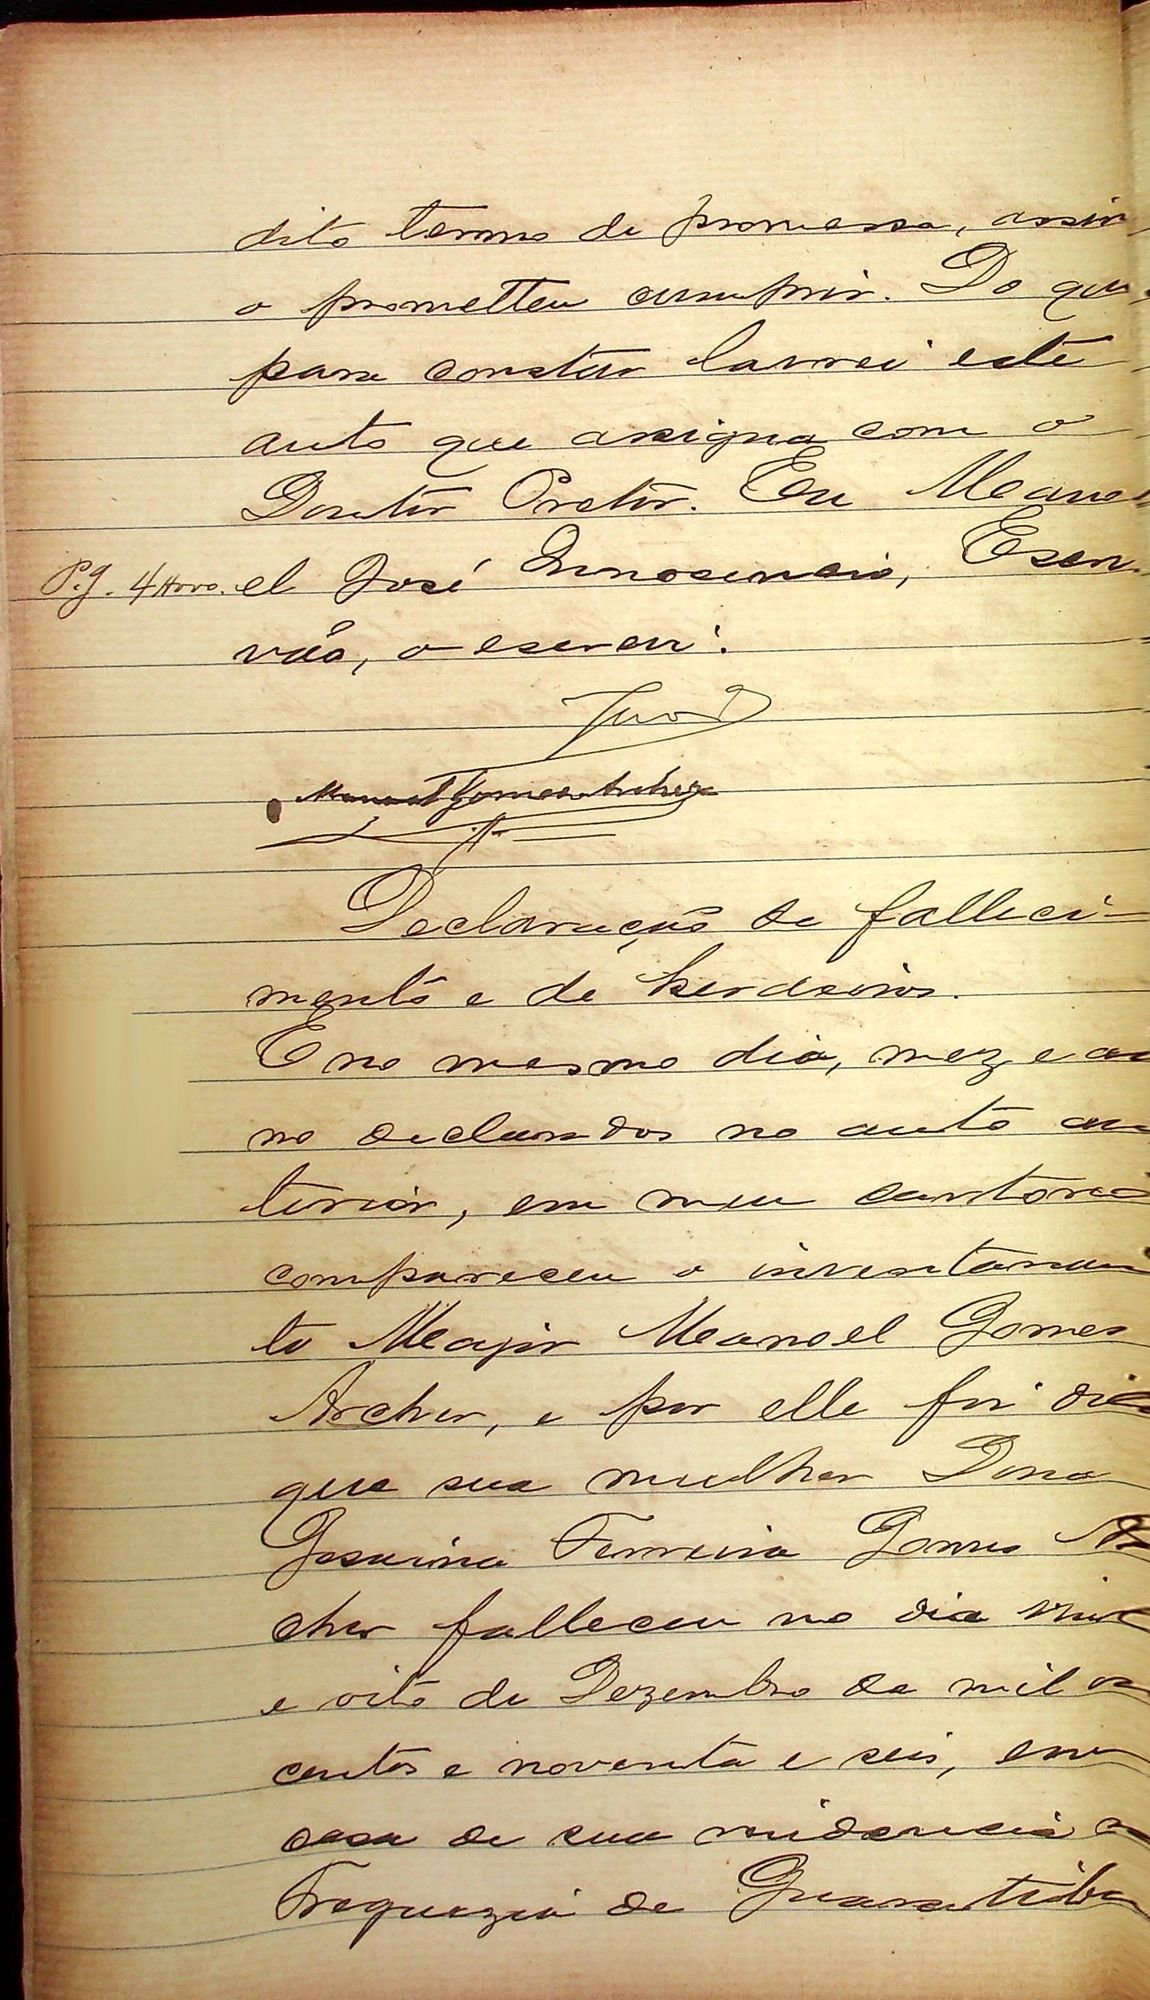 dito termo de promessa, assim
o prometteu cumprir. Do que
para constar lavrei este
auto que assigna com o
Doutor Pretor. Eu Mano
Pg. 4 el José Innocencio, Escri
vão, o escrevi.
Manoel Gomes Archer
Declaração de falleci-
mento e de herdeiros.
E no mesmo dia, mez e an
no declarados no auto an
terior, em meu cartorio
compareceu o inventarian
te Major Manoel Gomes
Archer, e por elle foi dito
que sua mulher Dona
Ferreira Gomes Ar
cher falleceu no dia vinte
e oito de Dezembro de mil oi
centos e noventa e seis, em
casa de sua residencia a
Freguezia de Guaratiba